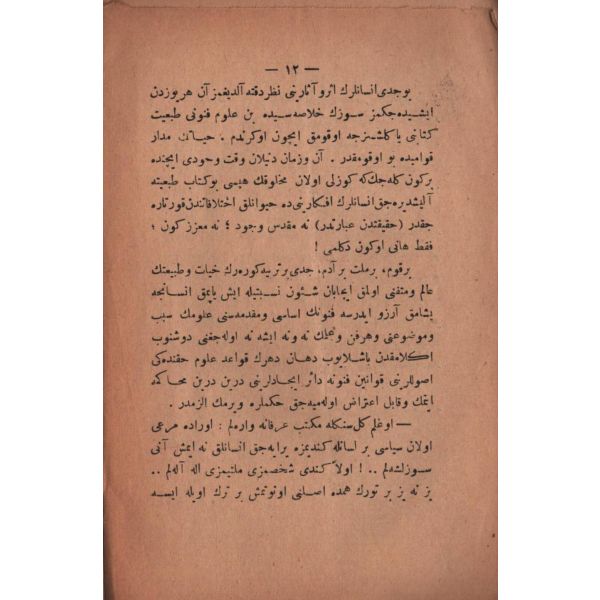 — ١٢ —
بو جدی انسانلرك اثر و آثارینی نظر دقته آلدیغمز آن هر یوزدن
ایشیده جكمز سوزك خلاصه سیده بن علوم فنونی طبیعت
كتابنی یاكلشسزجه اوقومق ایچون اوكرندم . حیاتك مدار
قوامیده بو اوقومقدر . آن وزمان دنیلان وقت وجودی ایچنده
بركون كله جك كه كوزلی اولان مخلوقك هپسی بو كتاب طبیعته
آلیشدیره جق انسانلرك افكارینی ده حیوانلق اختلافاتندن قورتاره
جقدر (حقیقتدن عبارتدر) نه مقدس وجود ؛ نه معزز كون ؛
فقط هانی اوكون دكلمی !
برقوم، برملت بر آدم، جدی بر تربیه كوره رك حیات وطبیعتك
عالم ومتفنی اولمق ایجابان شئون نسبتیله ایش یاپمق انسانجه
یشامق آرزو ایدرسه فنونك اساسی ومقدمه سنی علومك سبب
وموضوعنی وهرفن وعلمك نه ونه ایشه نه اوله جغنی دوشنوب
اكلامقدن باشلایوب دهان دهرك قواعد علوم حقنده كی
اصوللرینی قوانین فنونه دائر ایجادلرینی درین درین محاكمه
ایتمك وقابل اعتراض اوله میه جق حكملره ویرمك الزمدر .
— اوغلم كل سنكله مكتب عرفانه واره لم : اوراده مرعی
اولان سیاسی بر اساتله كندیمزه یرایه جق انسانلق نه ایمش آنی
سوزلشه لم .. ! اولاً كندی شخصمزی ملتیمزی اله آله لم ..
بز نه یز بر تورك همده اصلنی اونوتمش بر ترك اویله ایسه